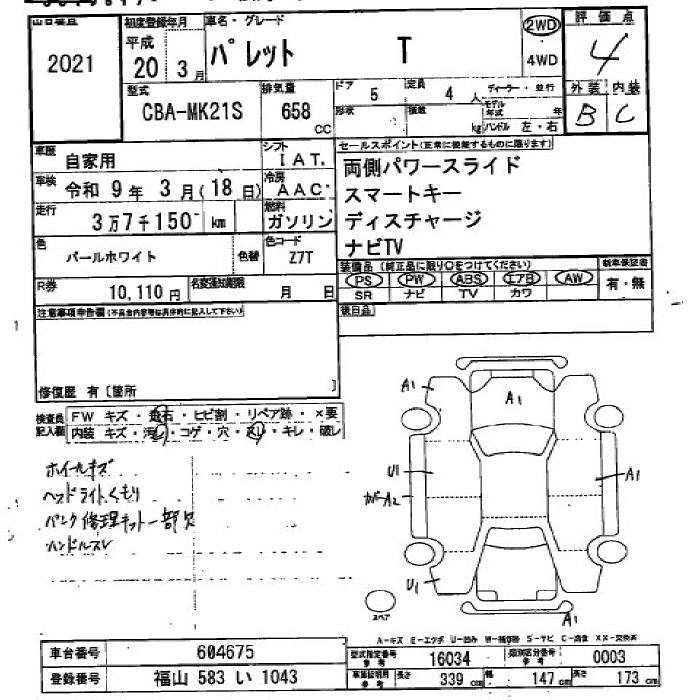 2021
初度登録年月
平成
20年3月
車名・グレード
パレット T
2WD
4WD
評価点
4
外装 内装
B C
型式
CBA-MK21S
排気量
658 CC
ドア
5
形状
定員
4人
積載
kg
ディーラー・並行
モデル年式 年
ハンドル 左・右
車歴
自家用
シフト
IAT
車検
令和9年3月(18日)
冷房
AAC
走行
3万7千150 km
燃料
ガソリン
色
パールホワイト
色替
色コード
Z7T
R券
10,110円
名変通知期限
月 日
セールスポイント(正常に機能するものに限ります)
両側パワースライド
スマートキー
ディスチャージ
ナビTV
装備品(純正品に限り○をつけてください)
PS PW ABS エアB AW
SR ナビ TV カワ
新車保証書
有・無
後日品
注意事項申告欄(不具合内容等は具体的に記入して下さい)
修復歴 有〔箇所 〕
検査員記入欄
FW キズ・飛石・ヒビ割・リペア跡・×要
内装 キズ・汚レ・コゲ・穴・スレ・キレ・破レ
ホイールキズ
ヘッドライトくもり
パンク修理キット一部欠
ハンドルスレ
A1
A1
U1
カバーA2
A1
U1
A1
スペア
A-キズ E-エクボ U-凹み W-補修跡 S-サビ C-腐食 XX-交換済
車台番号
604675
登録番号
福山 583 い 1043
型式指定番号
参考
16034
類別区分番号
参考
0003
車庫証明用
参考
長さ
339 cm
幅
147 cm
高さ
173 cm